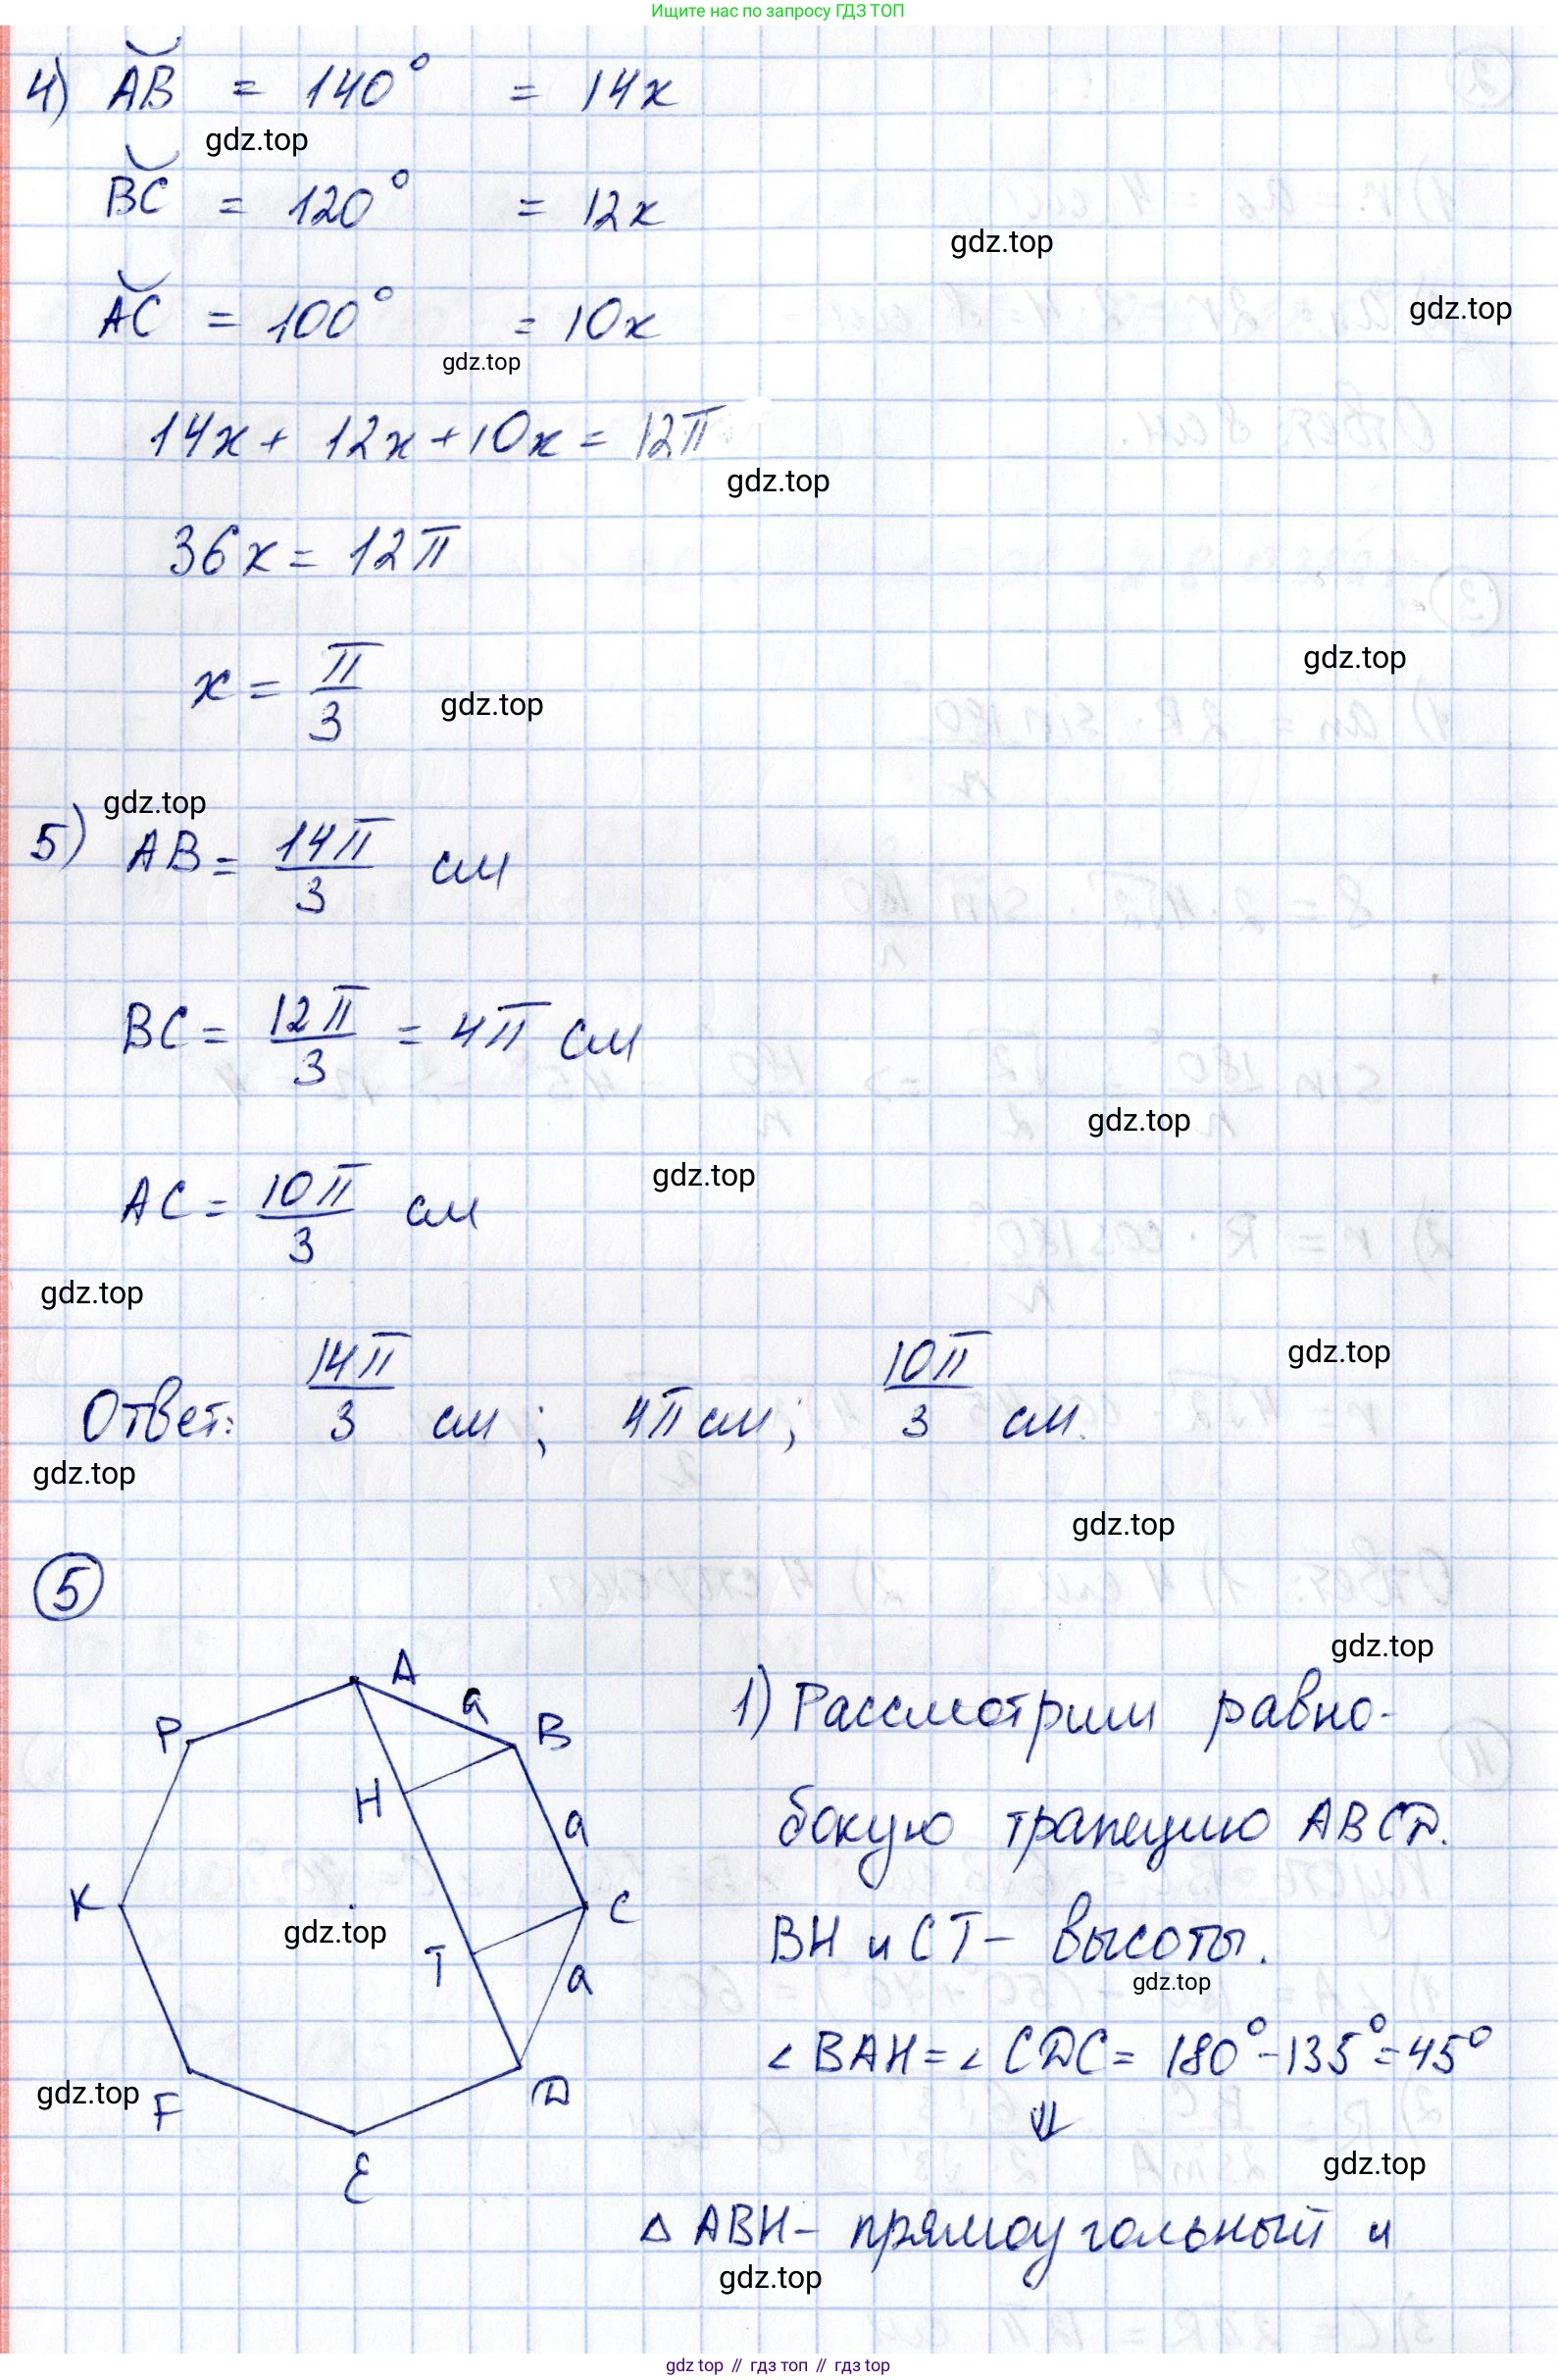 Ищите нас по запросу ГДЗ ТОП
4) AB = 140° = 14x
gdz.top
BC = 120° = 12x
gdz.top
AC = 100° = 10x
gdz.top
gdz.top
14x + 12x + 10x = 12π
gdz.top
36x = 12π
gdz.top
x = π/3
gdz.top
gdz.top
5) AB = 14π/3 см
BC = 12π/3 = 4π см
gdz.top
gdz.top
AC = 10π/3 см
gdz.top
gdz.top
Ответ: 14π/3 см; 4π см; 10π/3 см.
gdz.top
gdz.top
5
gdz.top
A
a
P
B
H
a
K
C
gdz.top
T
a
F
D
E
1) Рассмотрим равно-
бокую трапецию ABCD.
BH и CT – высоты.
gdz.top
∠BAH = ∠CDC = 180° - 135° = 45°
gdz.top
⇓
gdz.top
△ ABH – прямоугольный и
gdz.top
gdz top // гдз топ // гдз top